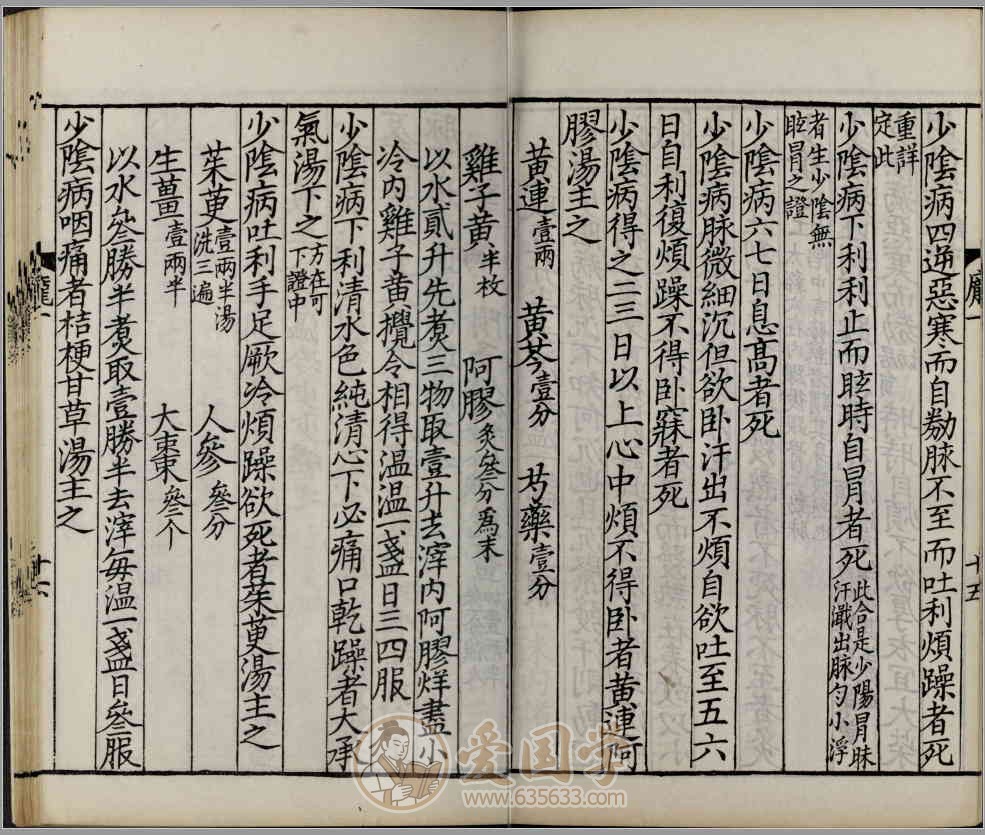 龐一
十五
少陰病四逆惡寒而自踡脉不至而吐利煩躁者死
重詳
定此
少陰病下利利止而眩時自冒者死此合是少陽冒昧
汗濈出脉勻小浮
者生少陰無
眩冒之證
少陰病六七日息高者死
少陰病脉微細沉但欲卧汗出不煩自欲吐至五六
日自利復煩躁不得卧寐者死
少陰病得之二三日以上心中煩不得卧者黄連阿
膠湯主之
黄連壹兩 黄芩壹分 芍藥壹分
雞子黄半枚 阿膠炙叄分爲末
以水貳升先煮三物取壹升去滓内阿膠烊盡小
冷内雞子黄攪令相得温温一盞日三四服
少陰病下利清水色純清心下必痛口乾躁者大承
氣湯下之方在可
下證中
少陰病吐利手足厥冷煩躁欲死者茱萸湯主之
茱萸壹兩半湯
洗三遍 人參叄分
生薑壹兩半 大棗叄个
以水叄勝半煮取壹勝半去滓每温一盞日叄服
少陰病咽痛者桔梗甘草湯主之
龐一
十六
爱国学
www.635633.com